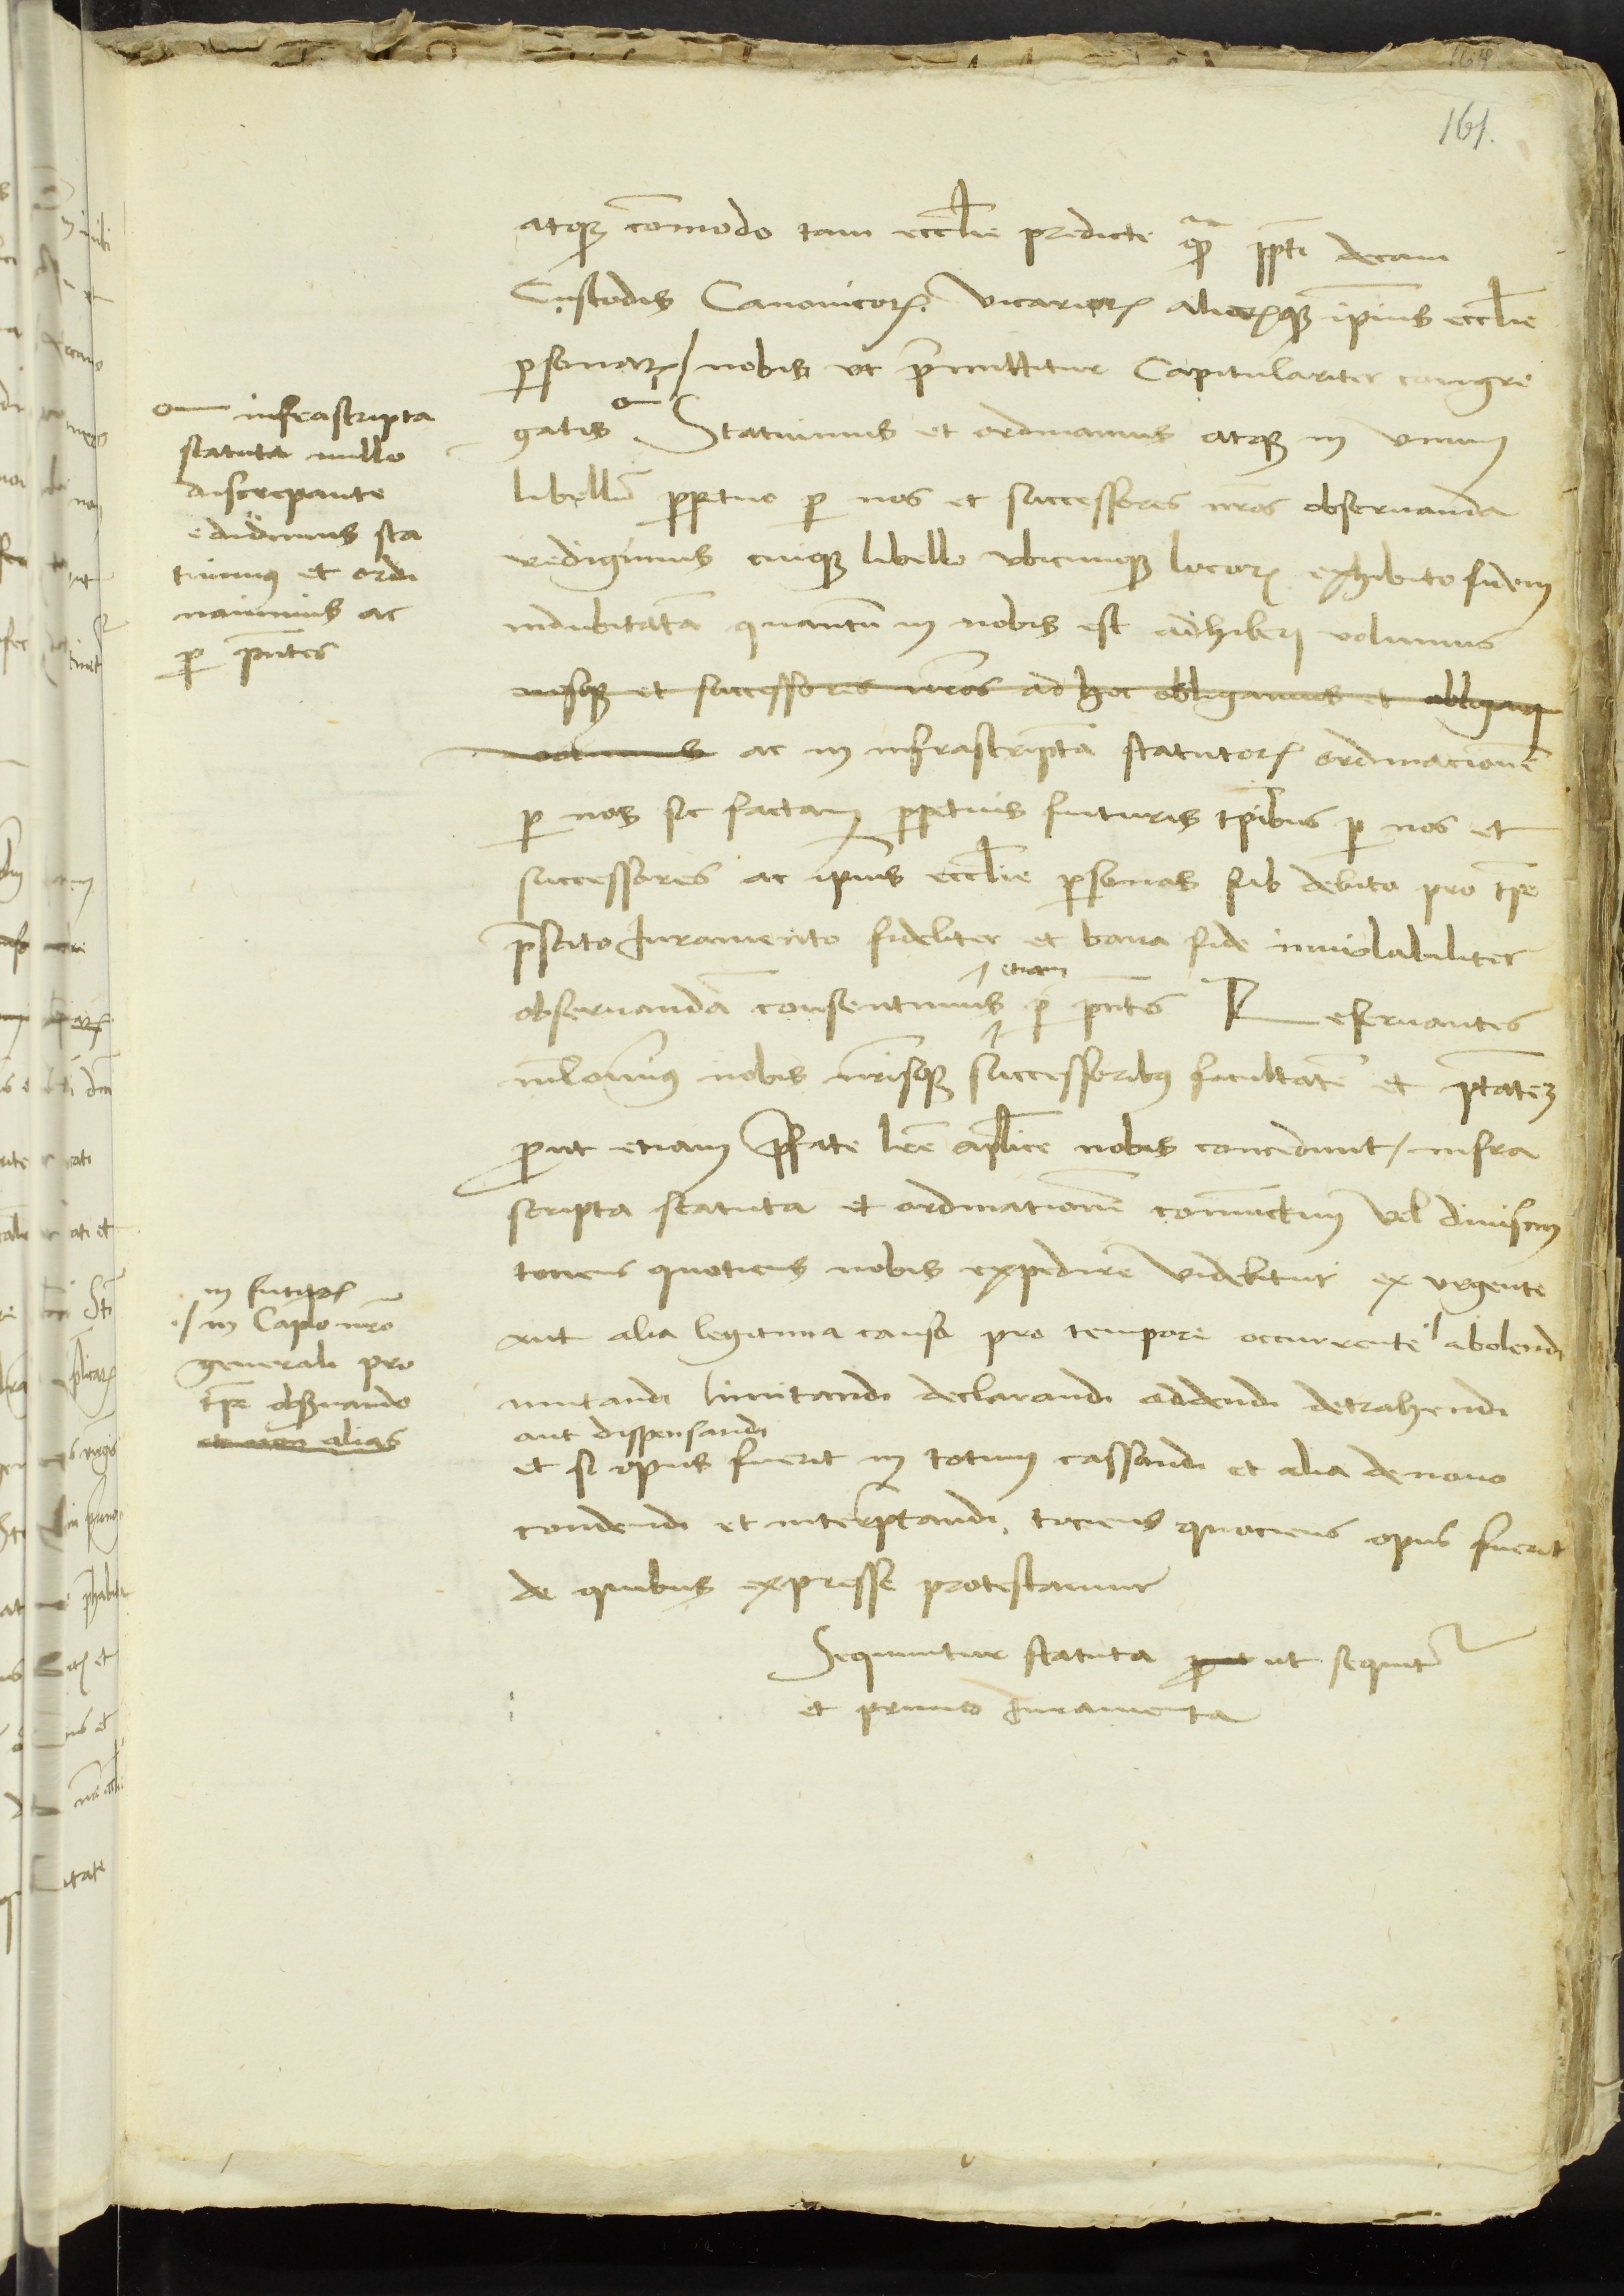 164
161.
atq̄ꝫ com̄odo tam eccl̄ie predicte qᷓꝫ p̄pti decani
Custodis Canonicoꝝ vicarioꝝ alioꝝq̄ꝫ ip̄ius eccl̄ie
ꝑsonaꝝ / nobis vt p̄mittitur Capitulariter congre
gatis Statuimus et ordinamus atqꝫ in vnum
libellū ꝑpetuo ꝑ nos et successores nr̄os obseruanda
redigimus cuiqꝫ libello vbicunqꝫ locoꝝ exhibito fidem
indubitatā quantū in nobis est adhiberi volumus
nosqꝫ et successores nr̄os ad hoc obligamus et obligari
volumus ac in infrascriptā statutoꝝ ordinacionē
ꝑ nos sic factam ꝑpetuis futuris tꝑibus ꝑ nos et
successores ac ip̄ius eccl̄ie ꝑsonas sub debito pro tp̄e
p̄stito Juramento fideliter et bona fide inuiolabiliter
etiam
obseruandā consentimus ꝑ p̄ntes Reseruantes
nichilominus nobis nr̄isqꝫ successoribus facultatē et ptātem
ꝓut etiam p̄fate lr̄e apl̄ice nobis concedunt / infra
scripta statuta et ordinationē coniunctim vel diuisim
tociens quotiens nobis expedire videbitur ex vrgente
aut alia legitima causa pro tempore occurrente abolendi
mutandi limitandi declarandi addendi detrahendi
aut dispensandi
et si opus fuerit in totum cassandi et alia denouo
condendi et interp̄tandi, tociens quociens opus fuerit
de quibus expresse protestamur
Sequuntur statuta ꝓut ut sequitr̄
et primo Juramenta
infrascripta
statuta nullo
discrepante
edidimus sta
tuimus et ordi
nauimus ac
ꝑ p̄ntes
in futuꝝ
./ in Capło nr̄o
generali pro
tp̄e obseruando
et non alias